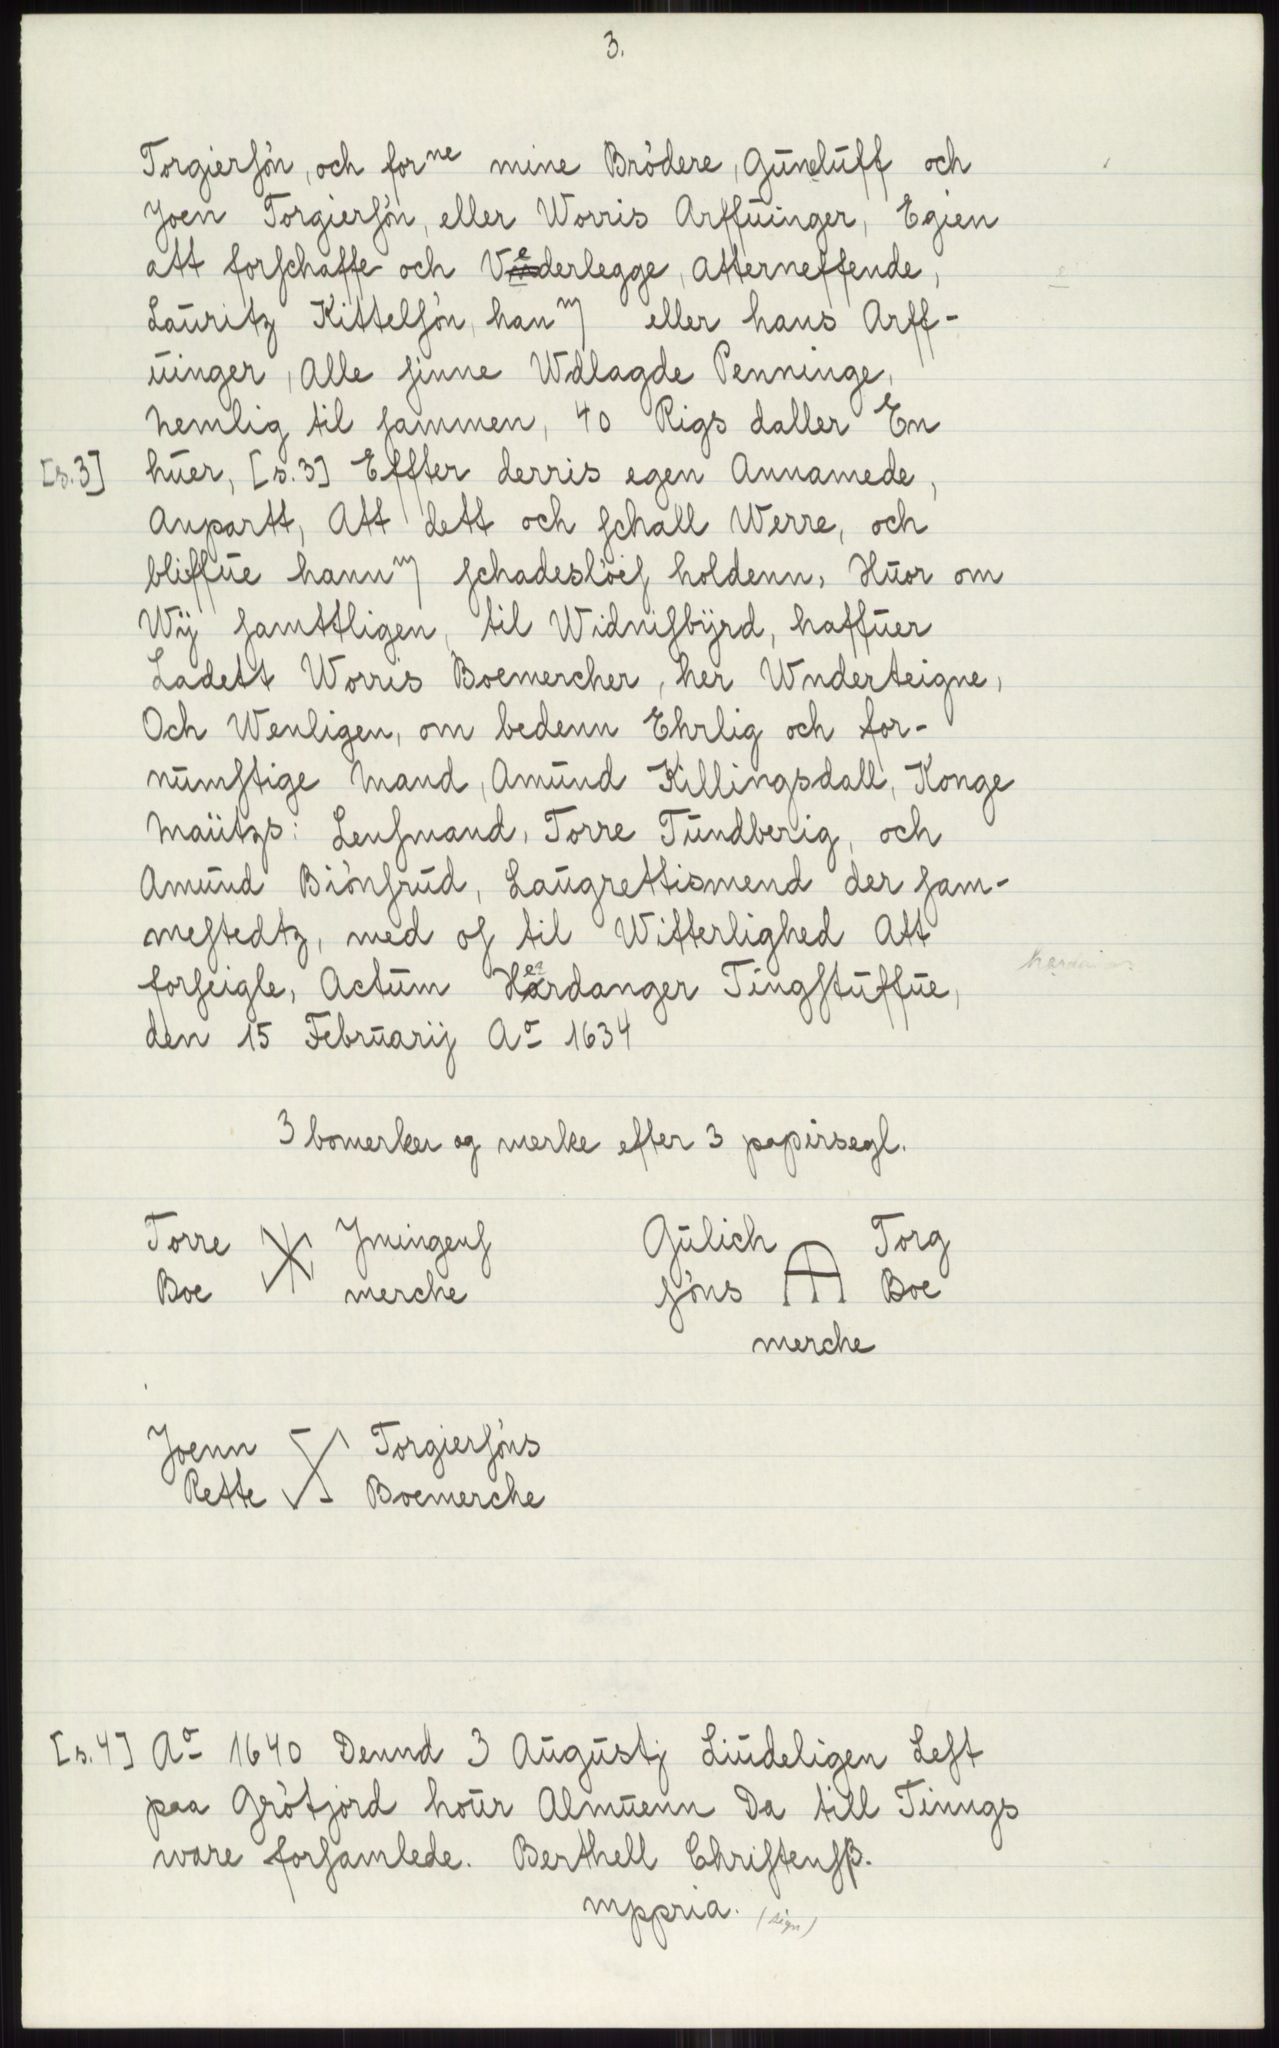 3.
Torgierſøn, och forne mine Brödere, Gŭnɇlŭff och
Joen Torgierſøn, eller Worris Arffŭinger, Egien
att forſchaffe och Vederlegge, Atterneffende,
Laŭritz Kittelſøn, hanm eller hans Arff-
ŭinger, Alle ſinne Wdlagde Penninge,
Nemlig til ſammen, 40 Rigs daller En
[s.3] hŭer, [s.3] Effter derris egen Annamede,
Anpartt, Att dett och ſchall Werre, och
bliffŭe hannm ſchadesløeſ holdenn, Hŭor om
Wÿ ſamttligen, til Widniſbÿrd, haffŭer
Ladett Worris Boemercher, her Wnderteigne,
Och Wenligen, om bedenn Ehrlig och for-
nŭmftige Mand, Amŭnd Killingsdall, Konge
Maÿtzs: Lenſmand, Torre Tŭndberig, och
Amŭnd Biönſrŭd, Laŭgrettismend der ſam-
meſtedtz, med oſ til Witterlighed Att
forſeigle, Actŭm Herdanger Tingſtŭffŭe,
den 15 Febrŭarij Ao 1634
3 bomerker og merke efter 3 papirsegl.
Torre Jmingenſ Gŭlich Torg
Boe merche ſöns Boe
merche
Joenn Torgierſöns
Rette Boemerche
[s.4] Ao 1640 Dennd 3 Aŭgŭstj Liŭdeligen Leſt
paa Grötjord hoŭr Almŭenn Da till Tinngs
ware forſamlede. Berthell Chriſtenſß.
mppria. (sign)